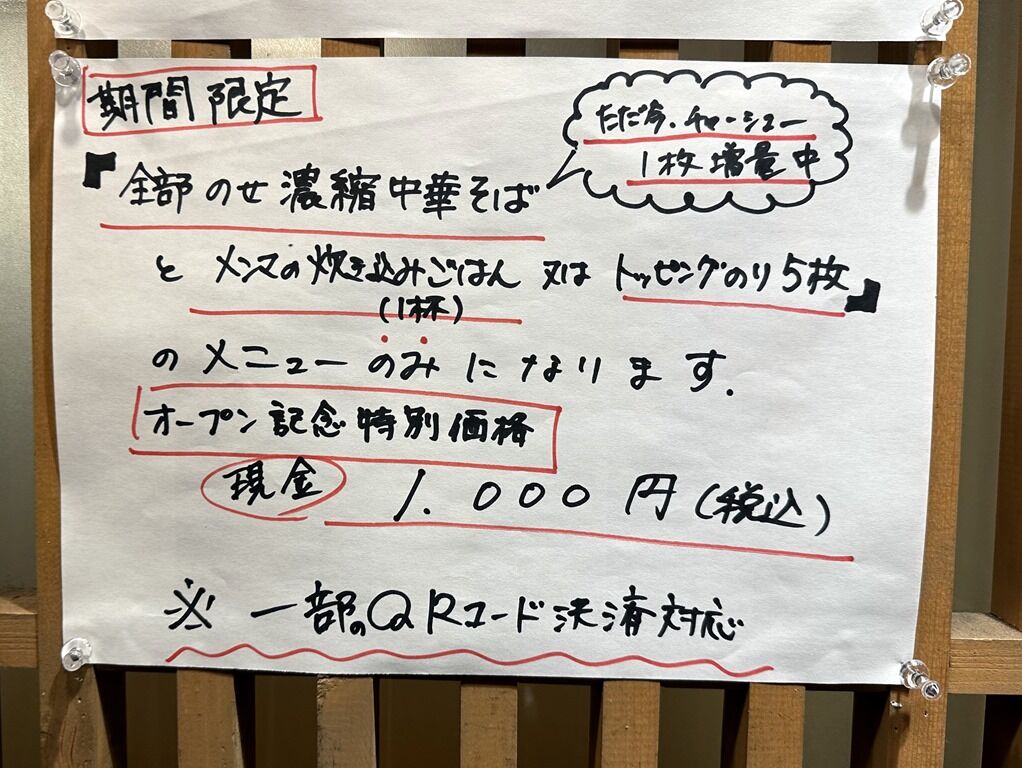 期間限定
ただ今、チャーシュー
1枚増量中
『全部のせ濃縮中華そば
と メンマの炊き込みごはん 又は トッピングのり5枚』
(1杯)
のメニューのみになります.
オープン記念特別価格
現金 1.000円(税込)
※ 一部のQRコード決済対応